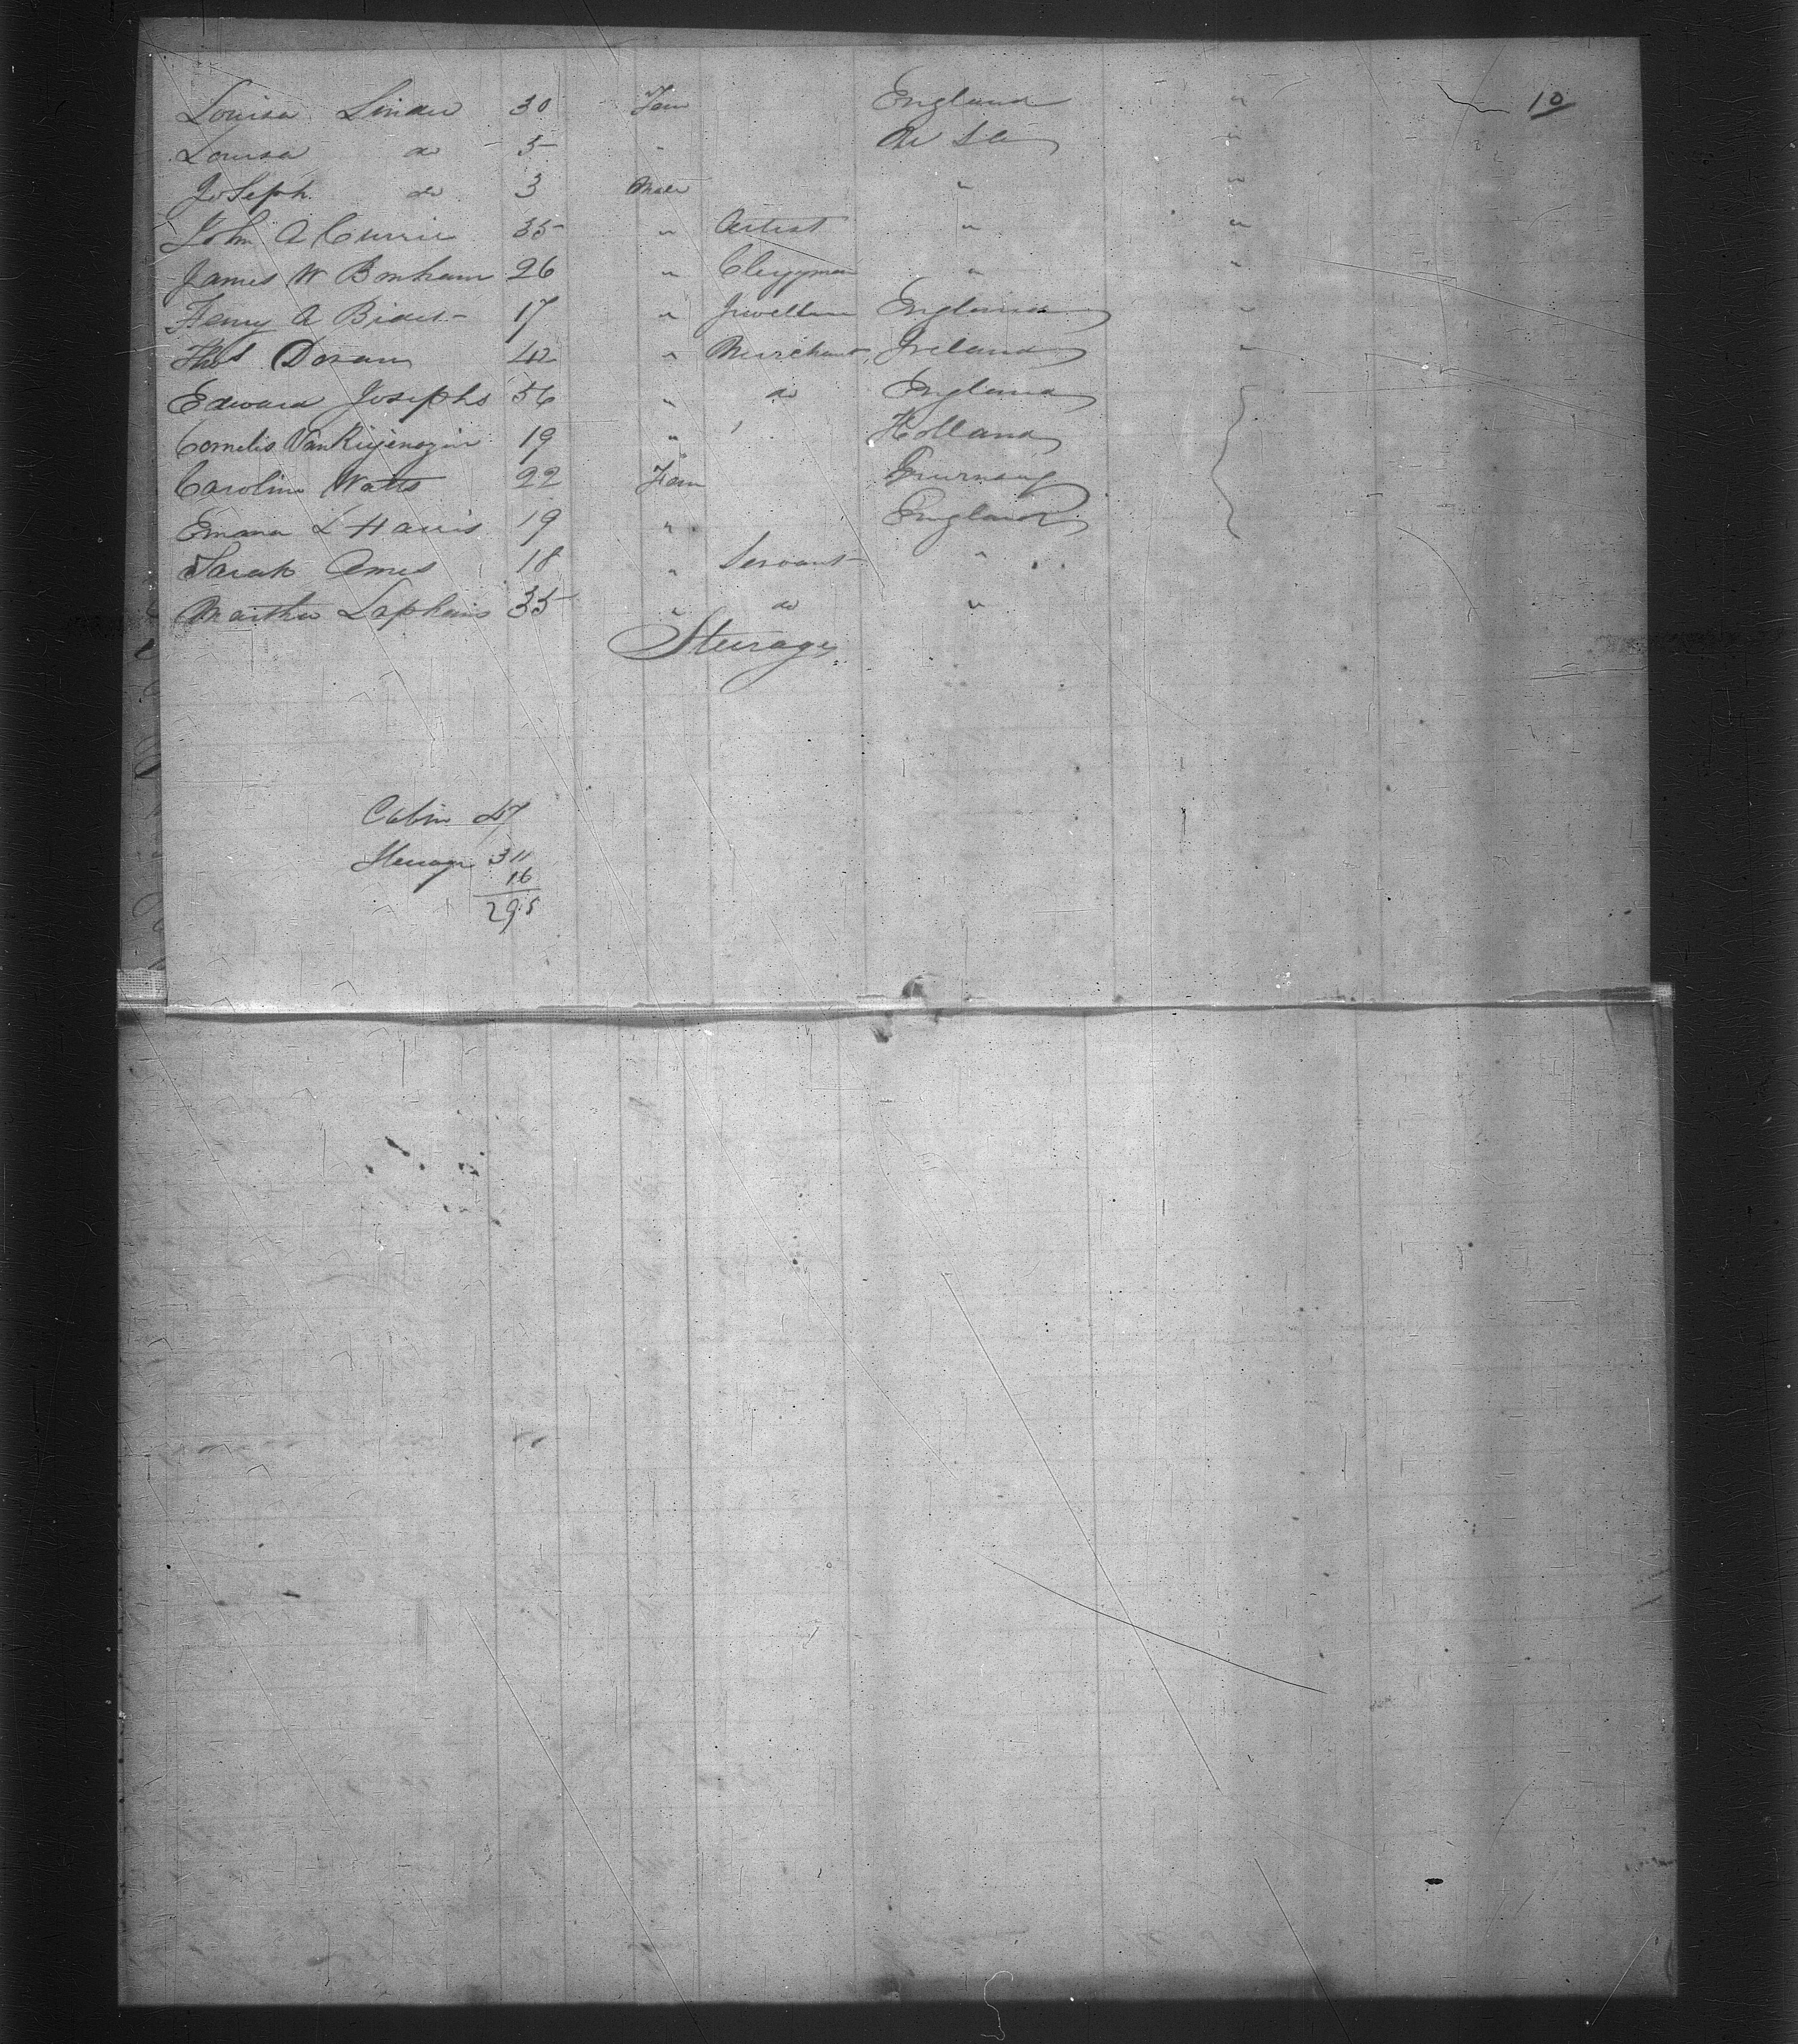 Louisa Linder 30 Fem England " 10
Louisa do 5 " "
Joseph do 3 Male " "
John A Currie 35 " Artist " "
James W Bonham 26 " Clergyman " "
Henry A 17 " Jeweller England "
Thos Doran 42 " Merchant Ireland "
Edward Josephs 56 " do England
Cornelis 19 " Holland
Caroline Watts 22 Fem Guernsey
Emma L Harris 19 " England
Sarah Ames 18 " Servant "
Martha Lapham 35 " do "
Steerage
Cabin 47
Steerage 311
16
295